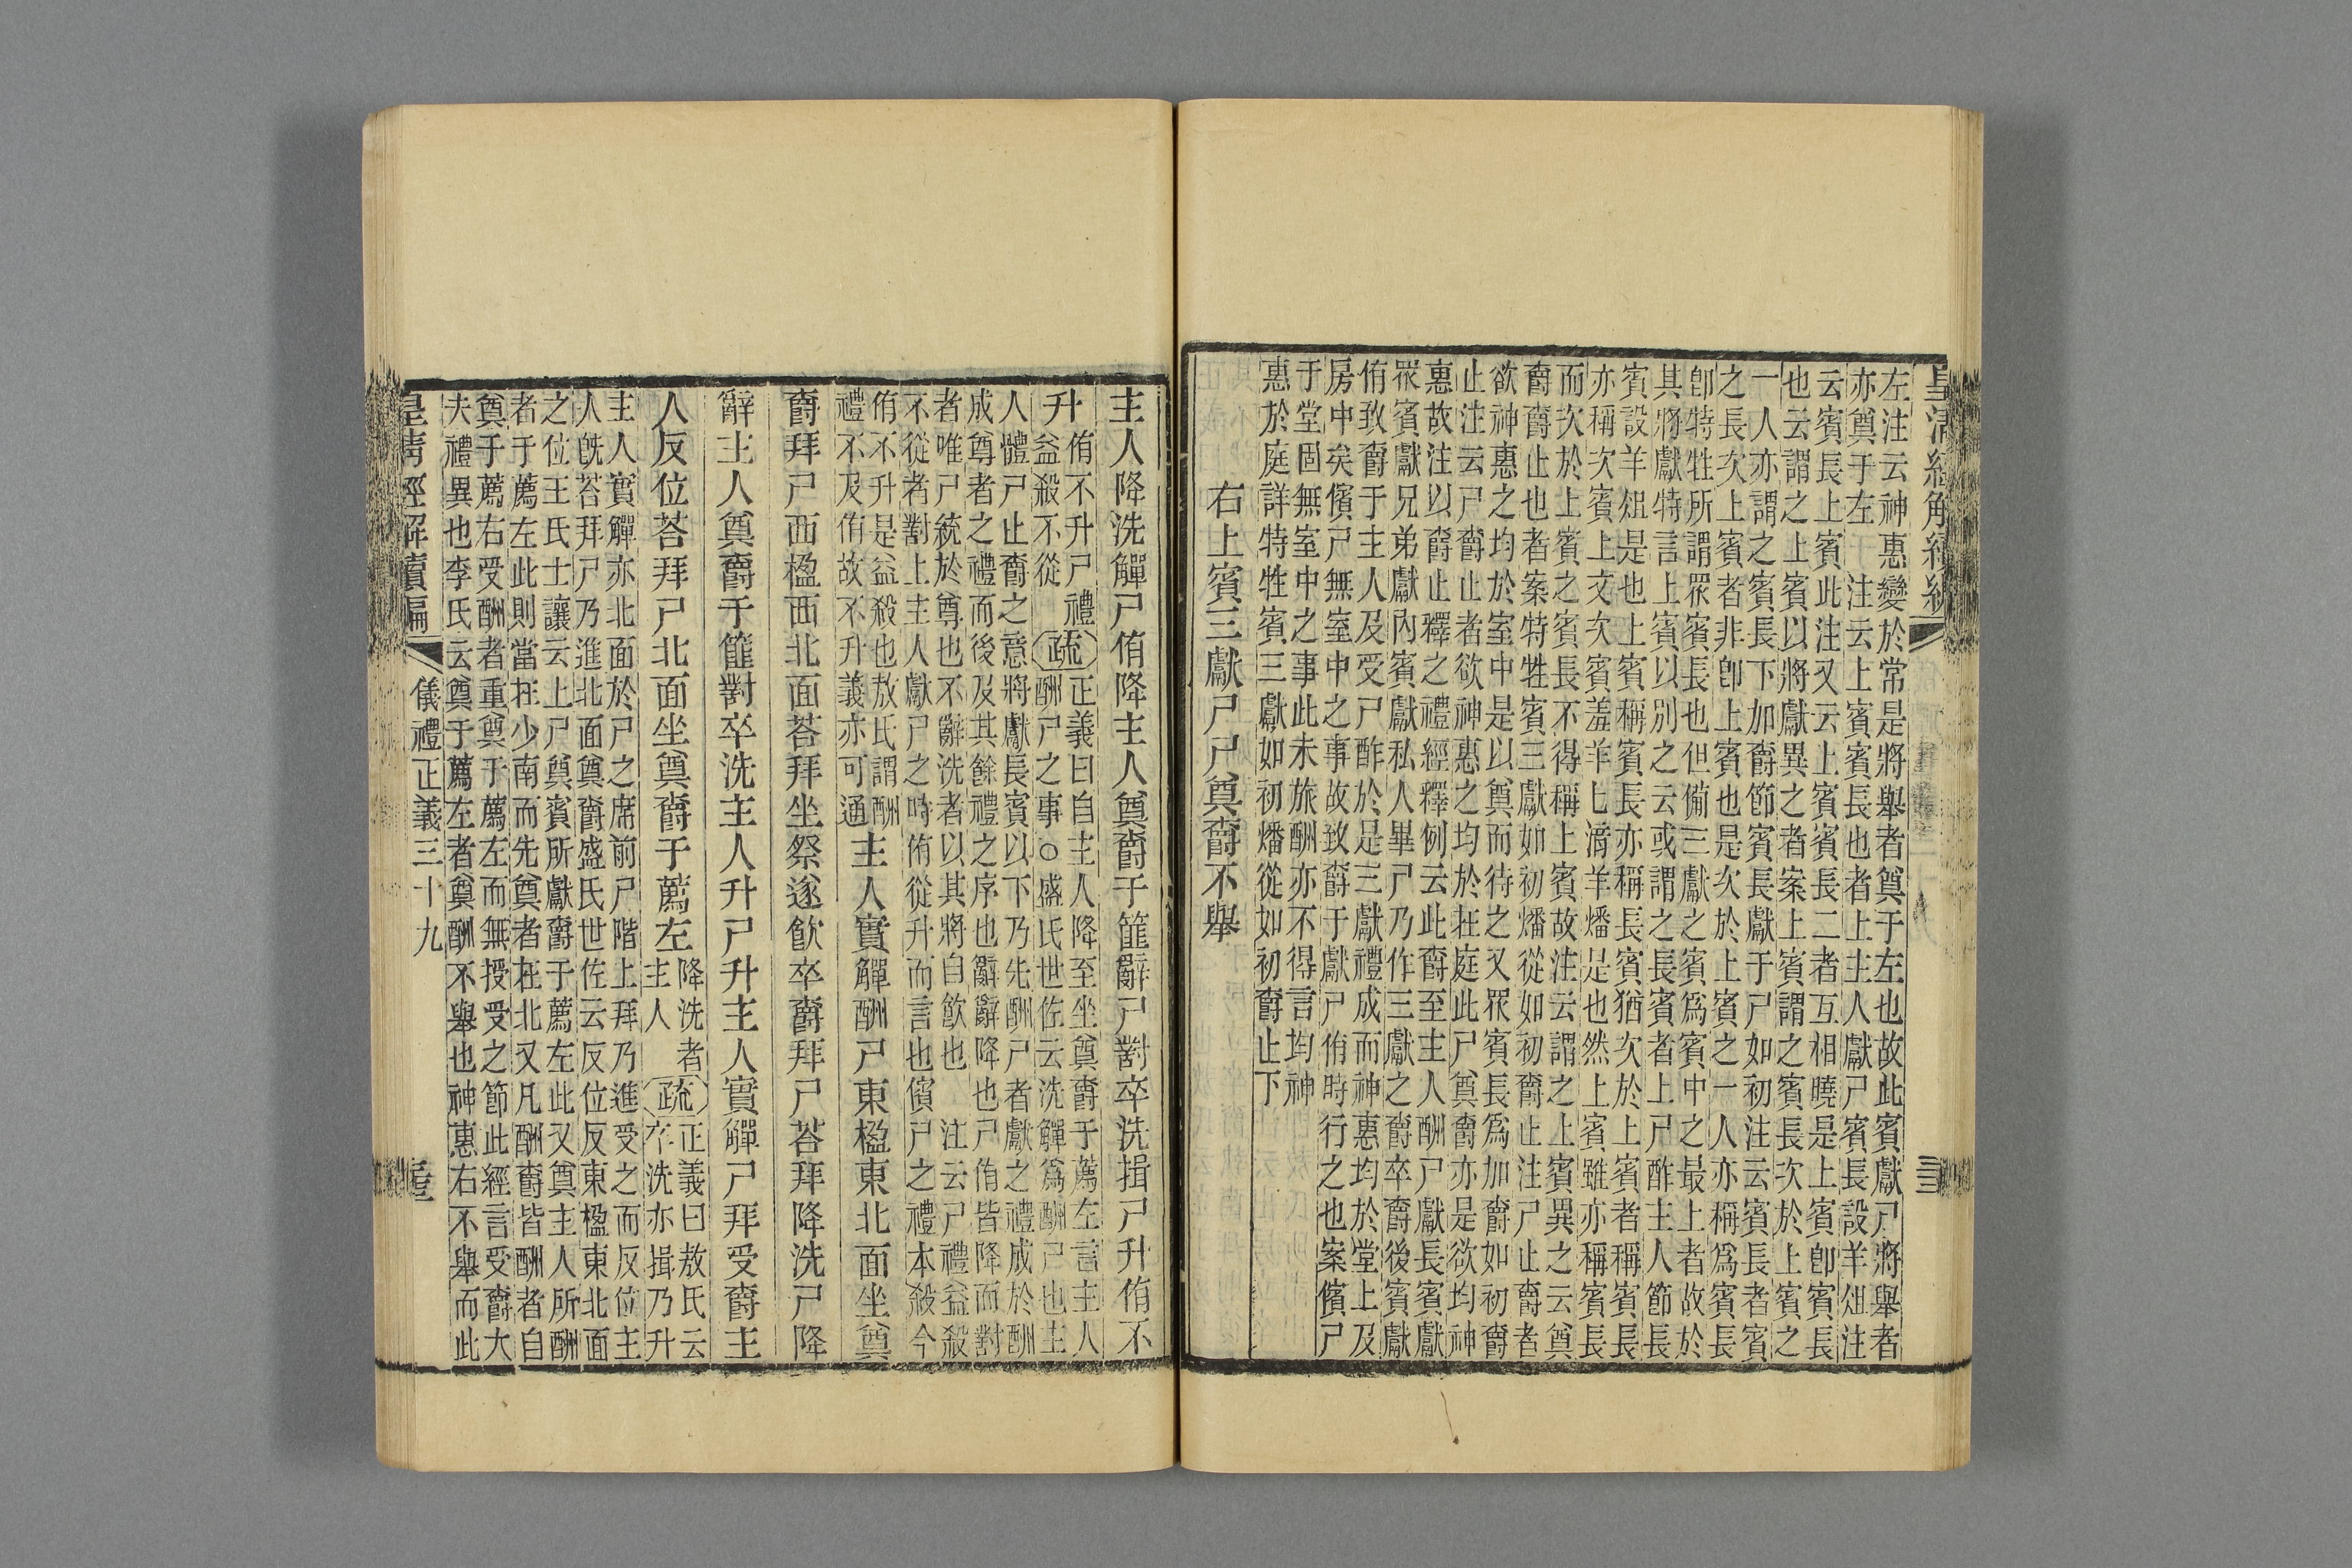 皇清經解續編
三三
左注云神惠變於常是將舉者奠于左也故此賓獻尸將舉者
亦奠于左 注云上賓賓長也者上主人獻尸賓長設羊俎注
云賓長上賓此注又云上賓賓長二者互相曉是上賓卽賓長
也云謂之上賓以將獻異之者案上賓謂之賓長次於上賓之
一人亦謂之賓長下加爵節賓長獻于尸如初注云賓長者賓
之長次上賓者非卽上賓也是次於上賓之一人亦稱爲賓長
卽特牲所謂眾賓長也但備三獻之賓爲賓中之最上者故於
其將獻特言上賓以別之云或謂之長賓者上尸酢主人節長
賓設羊俎是也上賓稱賓長亦稱長賓猶次於上賓者稱賓長
亦稱次賓上文次賓羞羊匕湆羊燔是也然上賓雖亦稱賓長
而次於上賓之賓長不得稱上賓故注云謂之上賓異之云奠
爵爵止也者案特牲賓三獻如初燔從如初爵止注尸止爵者
欲神惠之均於室中是以奠而待之又眾賓長爲加爵如初爵
止注云尸爵止者欲神惠之均於在庭此尸奠爵亦是欲均神
惠故注以爵止釋之禮經釋例云此爵至主人酬尸獻長賓獻
眾賓獻兄弟獻內賓獻私人畢尸乃作三獻之爵卒爵後賓獻
侑致爵于主人及受尸酢於是三獻禮成而神惠均於堂上及
房中矣儐尸無室中之事故致爵于獻尸侑時行之也案儐尸
于堂固無室中之事此未旅酬亦不得言均神
惠於庭詳特牲賓三獻如初燔從如初爵止下
右上賓三獻尸尸奠爵不舉
主人降洗觶尸侑降主人奠爵于篚辭尸對卒洗揖尸升侑不
升
侑不升尸禮
益殺不從
疏
正義曰自主人降至坐奠爵于薦左言主人
酬尸之事○盛氏世佐云洗觶爲酬尸也主
人體尸止爵之意將獻長賓以下乃先酬尸者獻之禮成於酬
成尊者之禮而後及其餘禮之序也辭辭降也尸侑皆降而對
者唯尸統於尊也不辭洗者以其將自飮也 注云尸禮益殺
不從者對上主人獻尸之時侑從升而言也儐尸之禮本殺今
侑不升是益殺也敖氏謂酬
禮不及侑故不升義亦可通
主人實觶酬尸東楹東北面坐奠
爵拜尸西楹西北面荅拜坐祭遂飮卒爵拜尸荅拜降洗尸降
辭主人奠爵于篚對卒洗主人升尸升主人實觶尸拜受爵主
人反位荅拜尸北面坐奠爵于薦左
降洗者
主人
疏
正義曰敖氏云
卒洗亦揖乃升
主人實觶亦北面於尸之席前尸階上拜乃進受之而反位主
人旣荅拜尸乃進北面奠爵盛氏世佐云反位反東楹東北面
之位王氏士讓云上尸奠賓所獻爵于薦左此又奠主人所酬
者于薦左此則當在少南而先奠者在北又凡酬爵皆酬者自
奠于薦右受酬者重奠于薦左而無授受之節此經言受爵大
夫禮異也李氏云奠于薦左者奠酬不舉也神惠右不舉而此
皇清經解續編
儀禮正義三十九